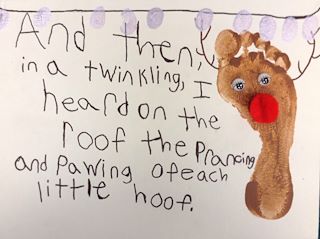 And then,
in a twinkling, I
heard on the
roof the Prancing
and Pawing ofeach
little hoof.